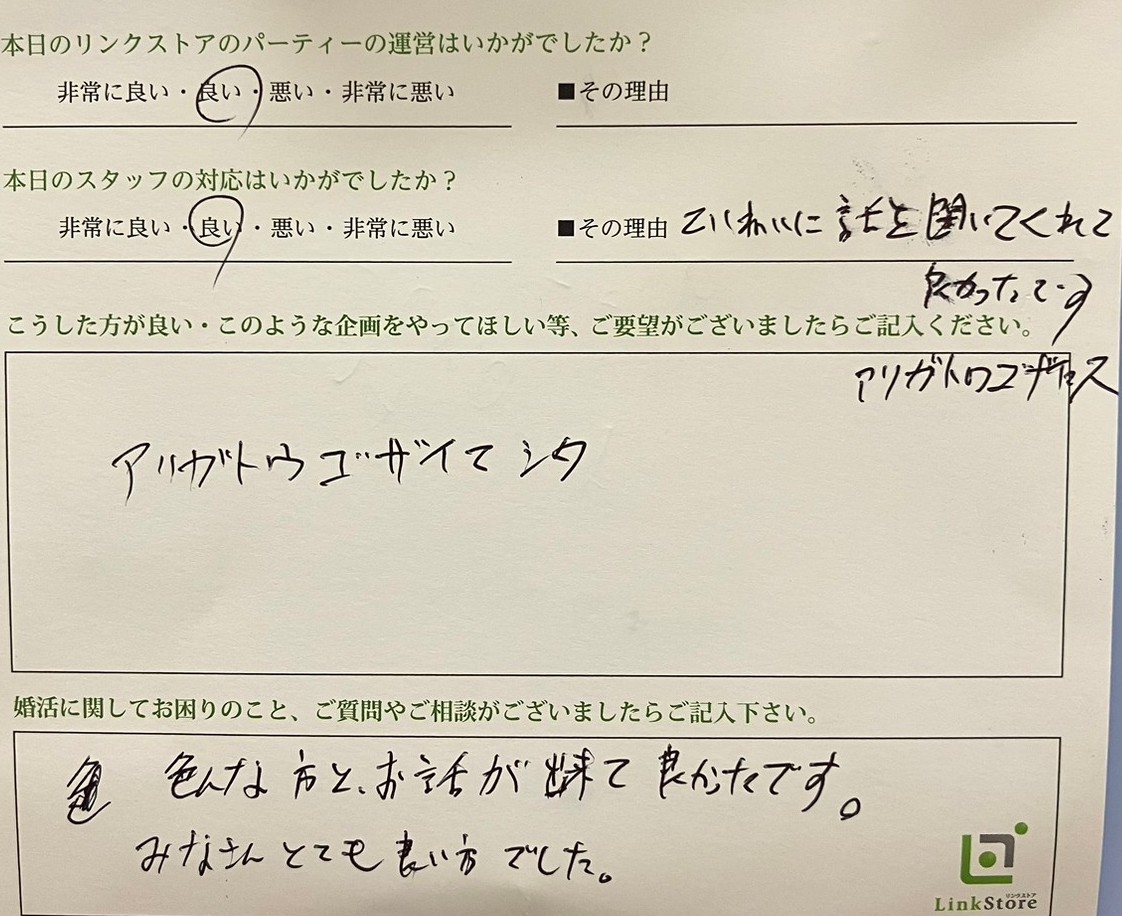 本日のリンクストアのパーティーの運営はいかがでしたか？
非常に良い・良い・悪い・非常に悪い ■その理由
本日のスタッフの対応はいかがでしたか？
非常に良い・良い・悪い・非常に悪い ■その理由 ていねいに話を聞いてくれて
良かったです
こうした方が良い・このような企画をやってほしい等、ご要望がございましたらご記入ください。
アリガトウゴザイマス
アリガトウゴザイマシタ
婚活に関してお困りのこと、ご質問やご相談がございましたらご記入下さい。
色んな方と、お話が出来て良かったです。
みなさんとても良い方でした。
リンクストア
LinkStore